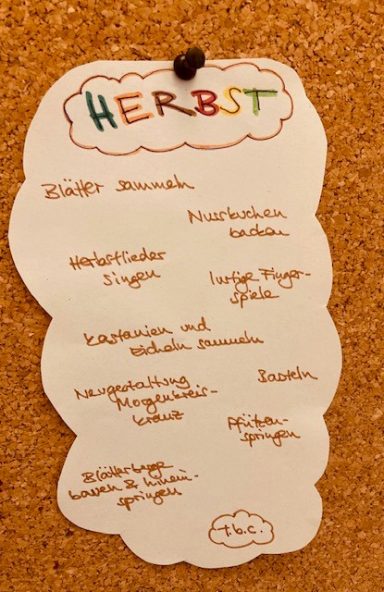 HERBST
Blätter sammeln
Nusskuchen
backen
Herbstlieder
singen
lustige Finger-
spiele
Kastanien und
Eicheln sammeln
Neugestaltung
Morgenkreis-
kranz
Basteln
Pfützen-
springen
Blätterberge
bauen & hinein-
springen
t.b.c.